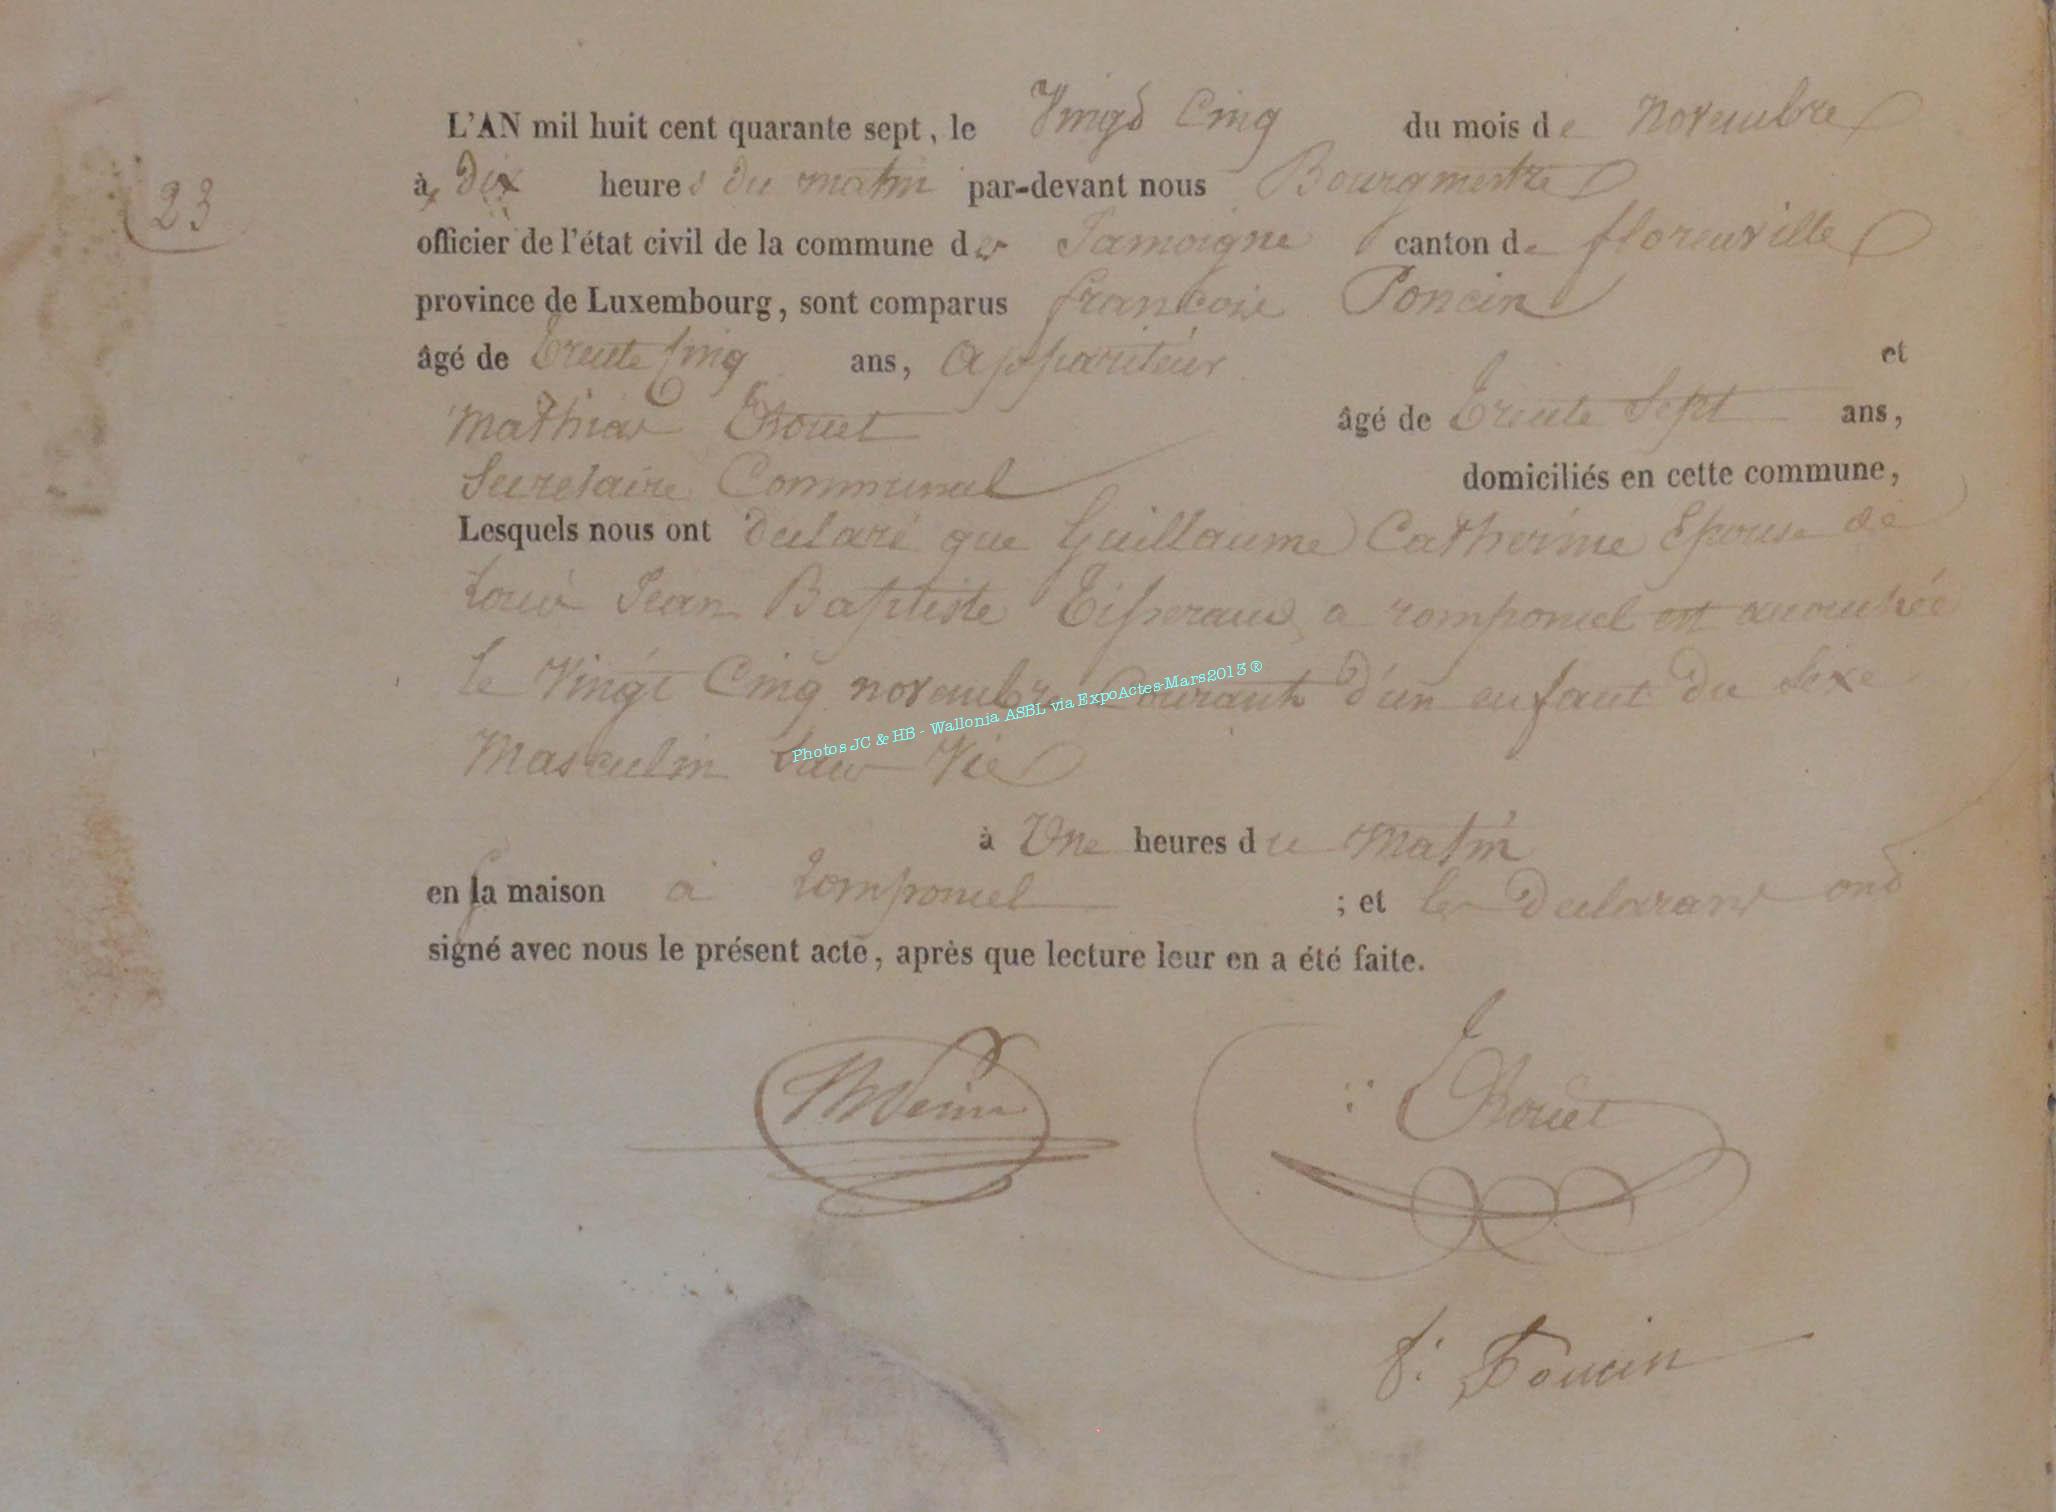 L'AN mil huit cent quarante sept, le Vingt Cinq du mois de Novembre
23
à Dix heures du matin par-devant nous Bourgmestre
officier de l'état civil de la commune de Jamoigne canton de florenville
province de Luxembourg, sont comparus francois Poncin
âgé de trente cinq ans, Appariteur et
Mathias âgé de trente Sept ans,
Secretaire Communal domiciliés en cette commune,
Lesquels nous ont declaré que Guillaume Catherine Epouse de
Louis Jean Baptiste a romponcel est accouchée
le Vingt Cinq novembre Courant d'un enfant du sixe
Masculin sans Vie
Photos JC & HB - Wallonia ASBL via ExpoActes-Mars2013 ®
à Une heures du Matin
en la maison à romponcel ; et les declarans ont
signé avec nous le présent acte, après que lecture leur en a été faite.
f: Poncin